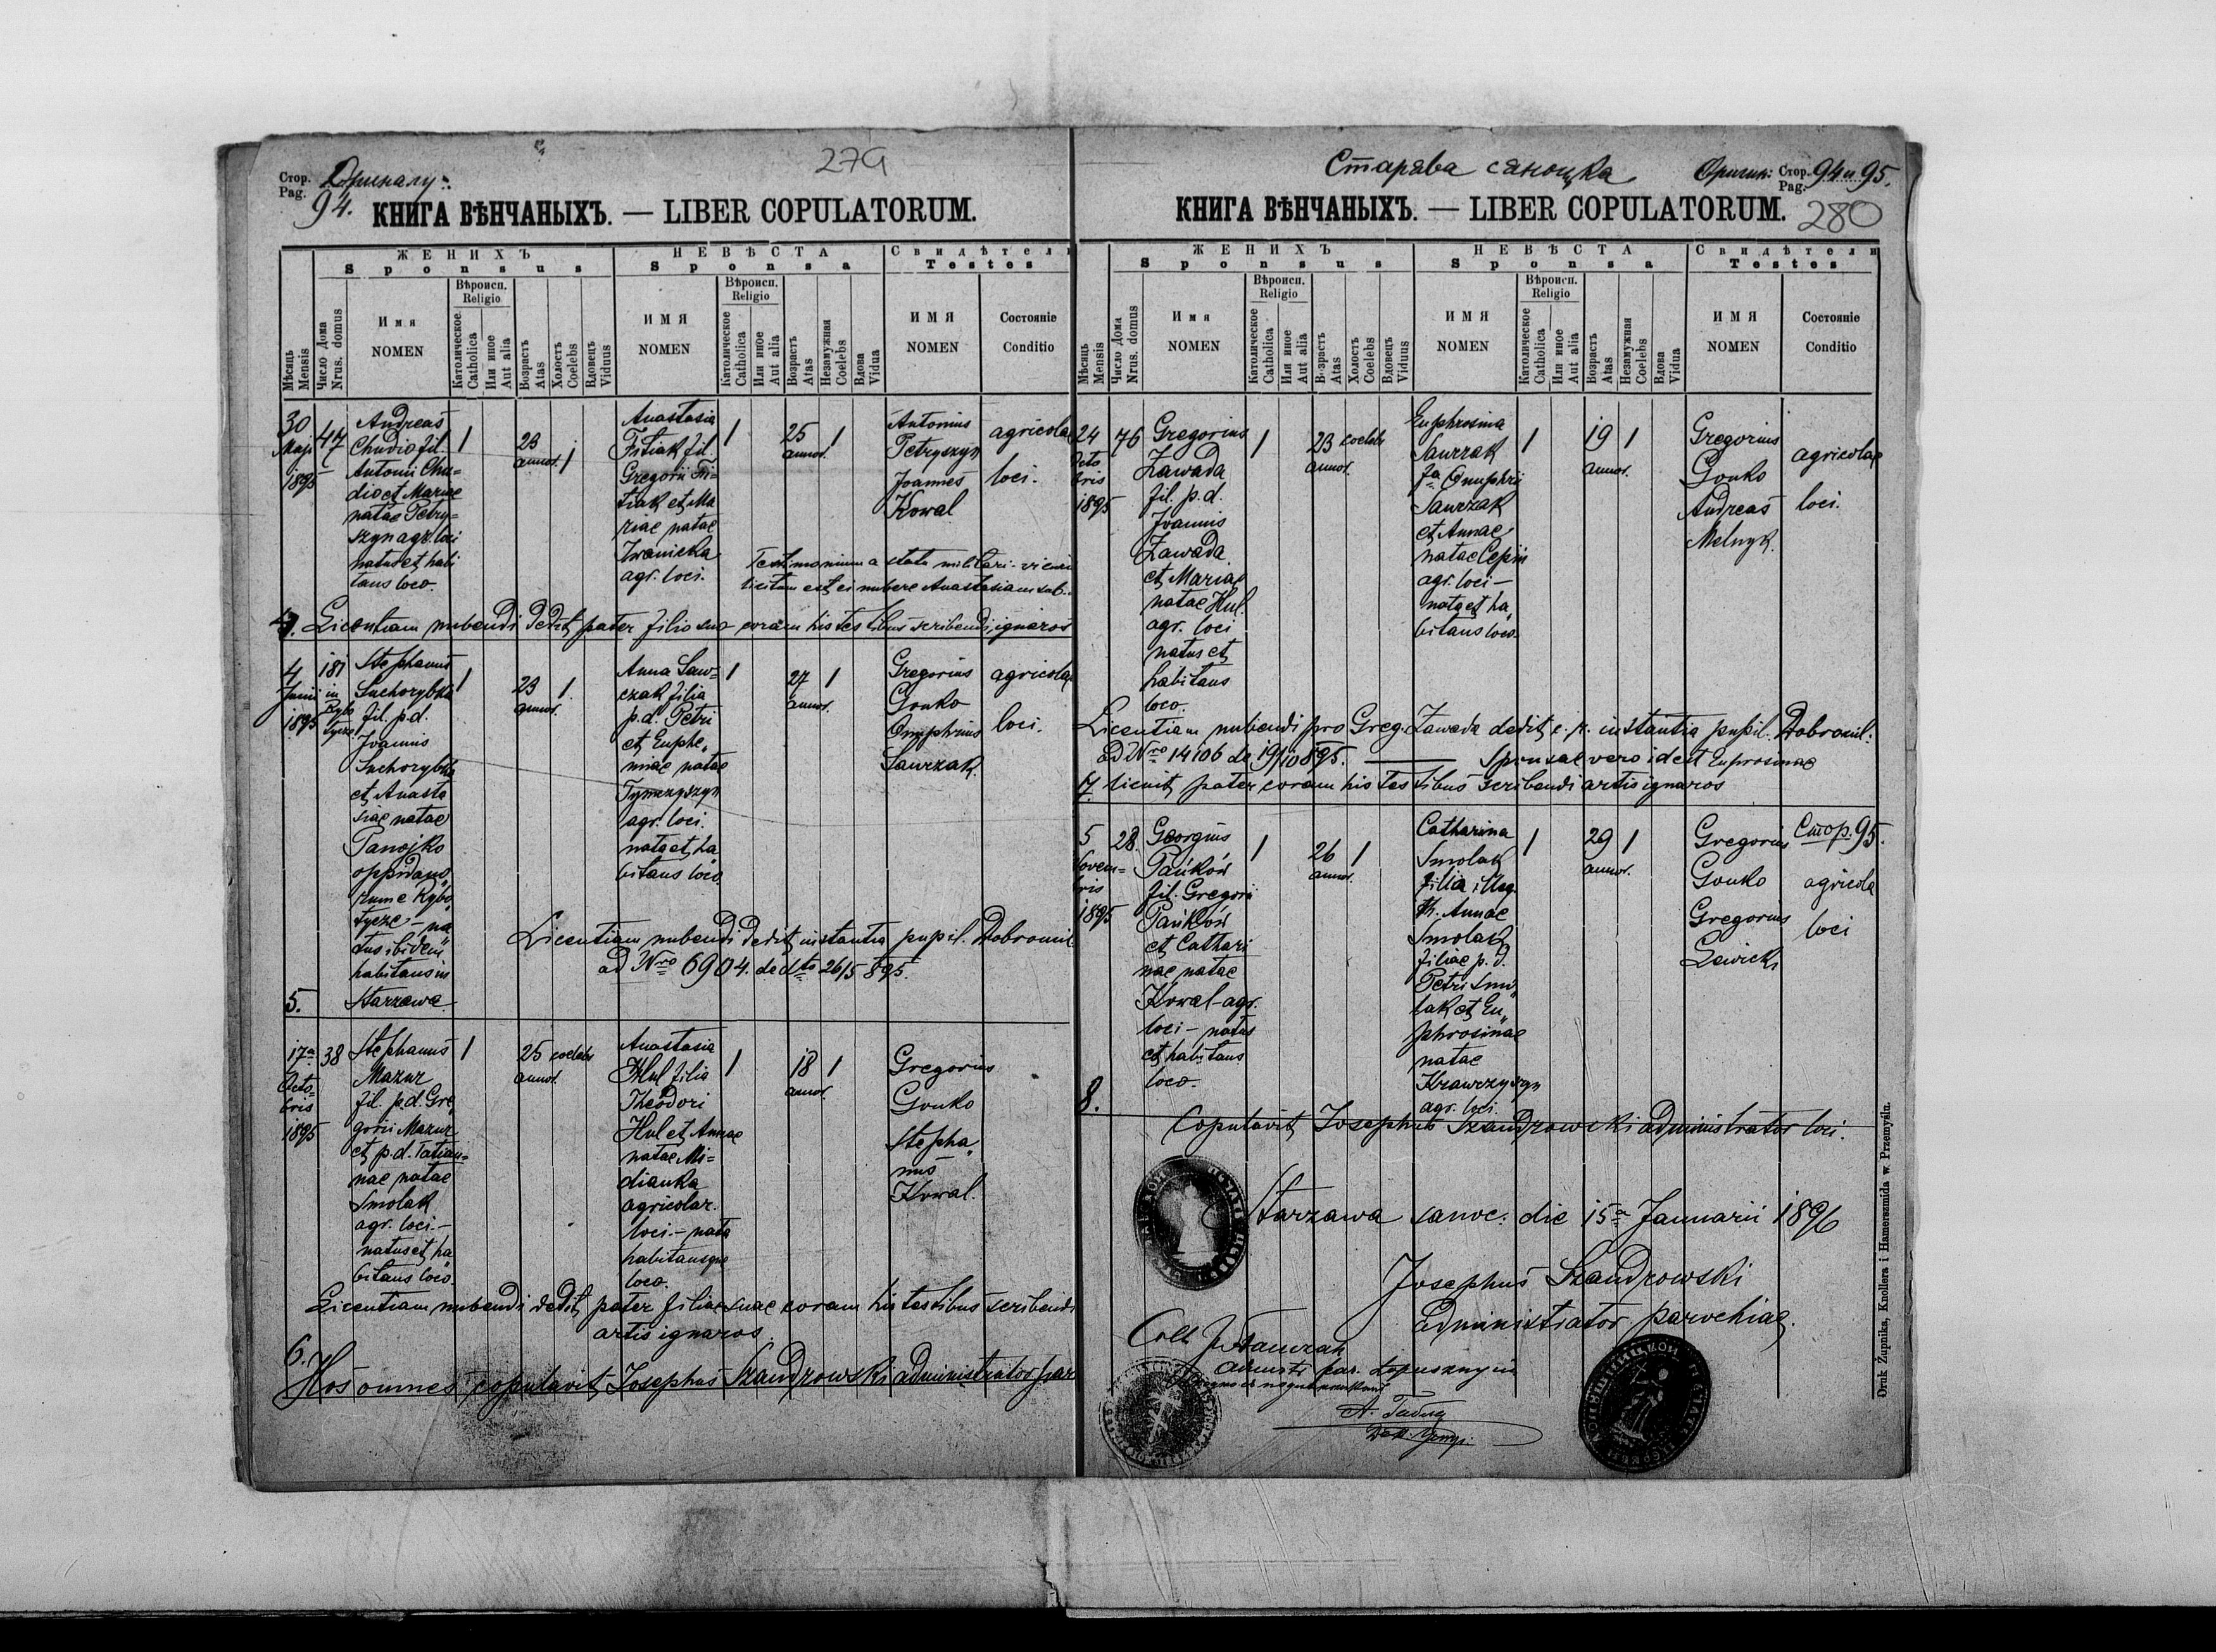 Стор.
Pag.
Оригиналу:
94.
279
КНИГА ВѢНЧАНЫХЪ. — LIBER COPULATORUM.
ЖЕНИХЪ
Sponsus
НЕВѢСТА
Sponsa
Свидѣтели
Testes
Мѣсяць
Mensis
Число Дома
Nrus. domus
Имя
NOMEN
Вѣроисп.
Religio
Католическое
Catholica
Или иное
Aut alia
Возрастъ
Atas
Холостъ
Coelebs
Вдовецъ
Viduus
ИМЯ
NOMEN
Вѣроисп.
Religio
Католическое
Catholica
Или иное
Aut alia
Возрастъ
Atas
Незамужная
Coelebs
Вдова
Vidua
ИМЯ
NOMEN
Состояніе
Conditio
30
Maji
1895
47
Andreas
Chudio fil.
Antonii Chu=
dio et Mariae
natae Petry=
szyn agr. loci
natus et habi
tans loco.
1
23
annor.
1
Anastasia
Fitiak fil.
Gregorii Fi=
tiak et Ma
riae natae
Iwanicka
agr. loci.
1
25
annor.
1
Antonius
Petryszyn
Joannes
Kowal
agricolae
loci.
Testimonium a statu militari
licitum est ei nubere Anastasiam
4. Licentiam nubendi dedit pater filio suo coram his testibus scribendi ignaros
4
Junii
1895
181
in
Rybo
tycze
Stephanus
Suchorybka
fil. p.d.
Joannis
Suchorybka
et Anasta
siae natae
Panojko
oppidano
rum e Rybo
tycze – na
tus ibidem
habitans in
Starzawa
1
23
annor.
1.
Anna Saw=
czak filia
p.d. Petri
et Euphe„
miae natae
Tymczyszyn
agr. loci.
nata et ha„
bitans loco.
1
27
annor.
1
Gregorius
Gonko
Onuphrius
Sawczak.
agricolae
loci.
Licentiam nubendi dedit instantia pupil. Dobromil
ad Nro 6904. de dto 26/5 895.
5.
17a
Octo=
bris
1895
38
Stephanus
Mazur
fil. p.d. Gre„
gorii Mazur
et p.d. Tatian=
nae natae
Smolak
agr. loci.–
natus et ha„
bitans loco.
1
25 coelebs
annor.
Anastasia
Hul filia
Theodori
Hul et Annae
natae Mi=
dianka
agricolar.
loci. – nata
habitansque
loco.
1
18
annor.
1
Gregorius
Gonko
Stepha„
nus
Kowal.
Licentiam nubendi dedit pater filiae suae coram his testibus scribendi
artis ignaros
6.
Hos omnes copulavit Josephus Szandrowski administrator par
Старява саноцка
Оригин: Стор.
Pag.
94 и 95.
280
КНИГА ВѢНЧАНЫХЪ. — LIBER COPULATORUM.
ЖЕНИХЪ
Sponsus
НЕВѢСТА
Sponsa
Свидѣтели
Testes
Мѣсяць
Mensis
Число Дома
Nrus. domus
Имя
NOMEN
Вѣроисп.
Religio
Католическое
Catholica
Или иное
Aut alia
Возрастъ
Atas
Холостъ
Coelebs
Вдовецъ
Viduus
ИМЯ
NOMEN
Вѣроисп.
Religio
Католическое
Catholica
Или иное
Aut alia
Возрастъ
Atas
Незамужная
Coelebs
Вдова
Vidua
ИМЯ
NOMEN
Состояніе
Conditio
24
Octo
bris
1895
76
Gregorius
Zawada
fil. p.d.
Joannis
Zawada
et Mariae
natae Hul.
agr. loci
natus et
habitans
loco.
1
23 coelebs
annor.
Euphrosina
Sawczak
fa Onuphrii
Sawczak
et Annae
natae Cepin
agr. loci –
nata et ha„
bitans loco.
1
19
annor.
1
Gregorius
Gonko
Andreas
Melnyk.
agricolae
loci.
Licentiam nubendi pro Greg. Zawada dedit c. r. instantia pupil. Dobromil:
ad Nro 14106 de 19/10 895. — Sponsae vero id est Euprosinae
7. licuit pater coram his testibus scribendi artis ignaros
5
Novem=
bris
1895
28.
Georgius
Pańków
fil. Gregorii
Pańków
et Cathari
nae natae
Kowal – agr.
loci – natus
et habitans
loco.
1
26
annor.
1
Catharina
Smolak
filia illeg.
th. Annae
Smolak
filiae p.d.
Petri Smo„
lak et Eu„
phrosinae
natae
Krawczyszyn
agr. loci.
1
29
annor.
1
Gregorius
Gonko
Gregorius
Lewicki
Стор. 95.
agricola
loci
8.
Copulavit Josephus Szandrowski administrator loci.
Starzawa sanoc: die 15a Januarii 1896
Josephus Szandrowski
administrator parochiae.
Coll
А. Гадза
Druk Żupnika, Knollera i Hamerszmida w Przemyślu.